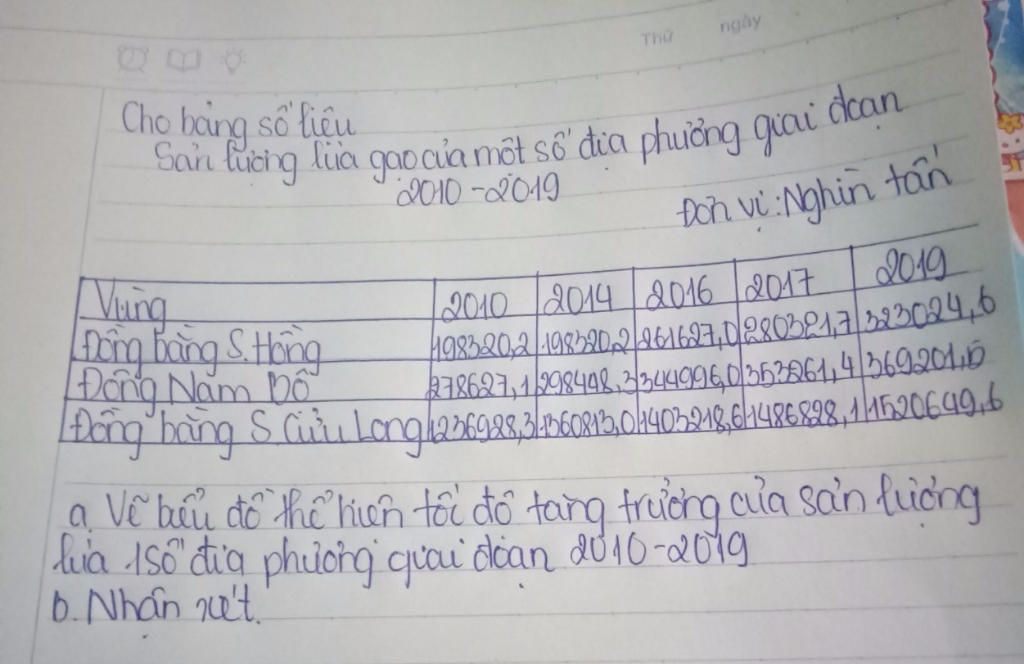 Thứ ngày
Cho bảng số liệu
Sản lượng lúa gạo của một số địa phương giai đoạn
2010-2019
Đơn vị: Nghìn tấn
Vùng 2010 2014 2016 2017 2019
Đồng bằng S. Hồng 198320,2 198320,2 261627,0 280321,7 323024,6
Đông Nam Bộ 278627,1 298448,3 344996,0 353261,4 369201,0
Đồng bằng S. Cửu Long 1236928,3 1360813,0 1403218,6 1486828,1 1520649,6
a. Vẽ biểu đồ thể hiện tốc độ tăng trưởng của sản lượng
lúa 1 số địa phương giai đoạn 2010-2019
b. Nhận xét.